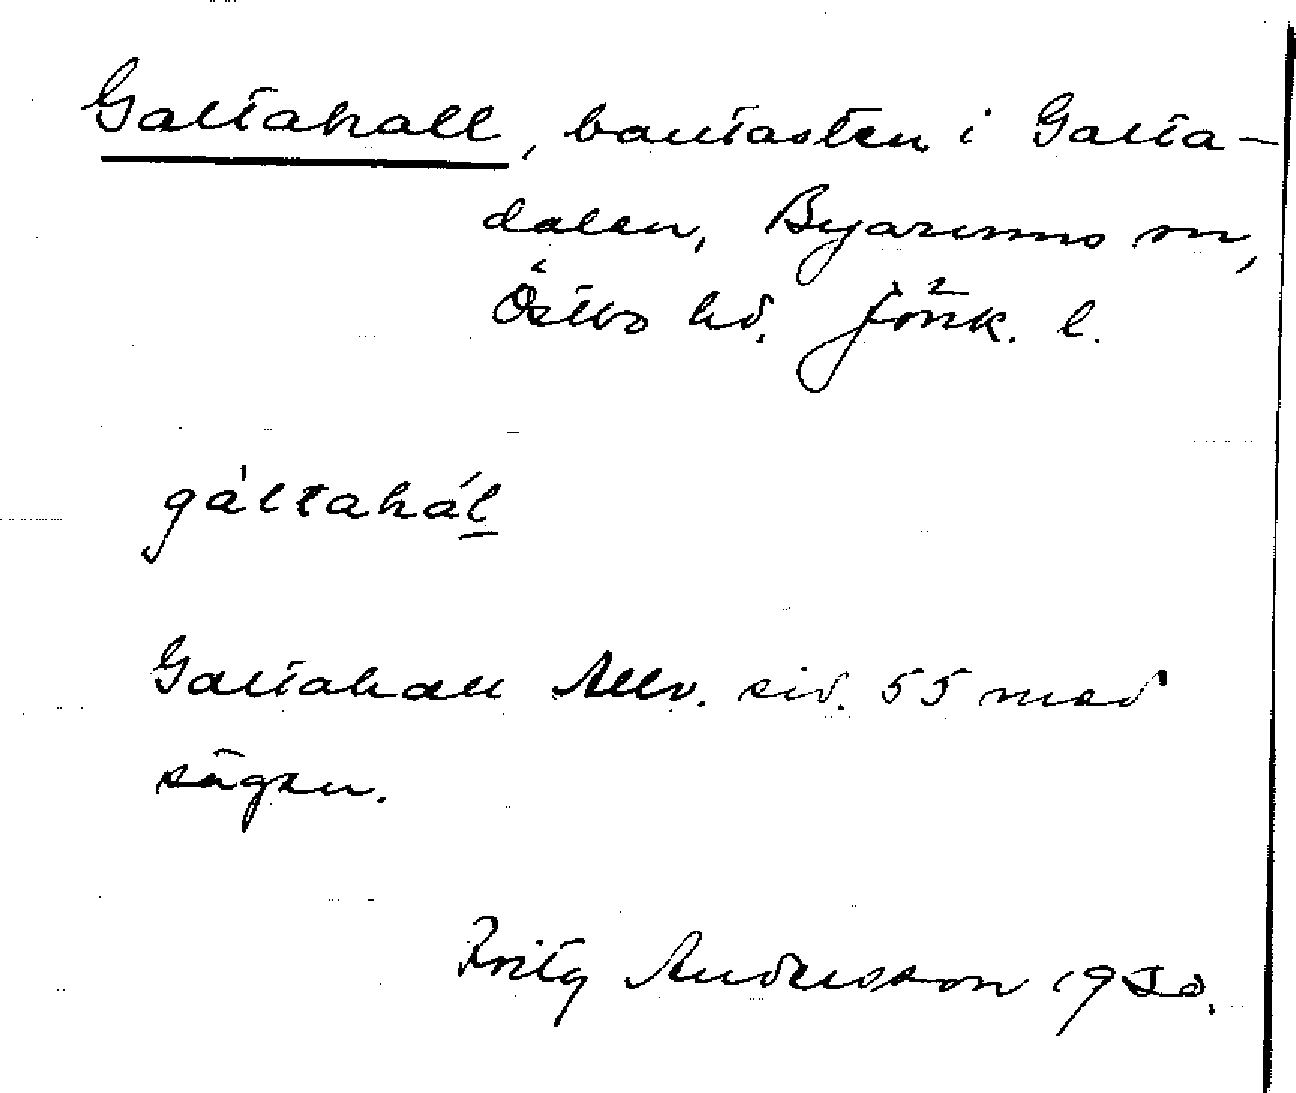 Galtahall, bautasten i Galta-
dalen, Byarums sn,
Östbo hd. Jönk. l.
gáltahál
Galtahall Allv. sid. 55 med
sägen.
Fritz Andersson 1930.